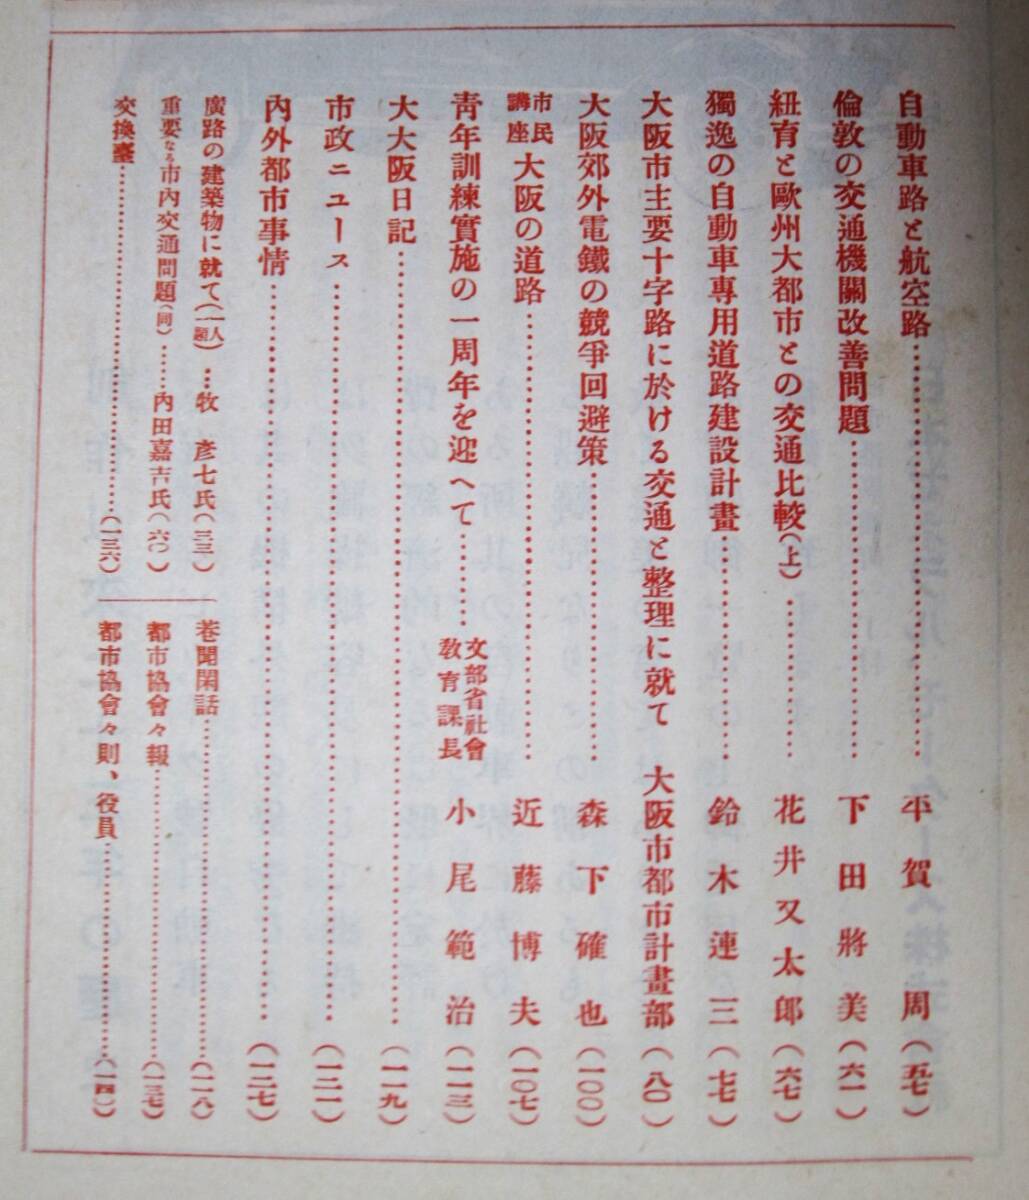 自動車路と航空路……平賀周(五七)
倫敦の交通機關改善問題……下田將美(六一)
紐育と歐州大都市との交通比較(上)……花井又太郎(六七)
獨逸の自動車專用道路建設計畫……鈴木連三(七七)
大阪市主要十字路に於ける交通と整理に就て 大阪市都市計畫部(八〇)
大阪郊外電鐵の競爭回避策……森下確也(一〇〇)
市民講座 大阪の道路……近藤博夫(一〇七)
靑年訓練實施の一周年を迎へて……文部省社會敎育課長 小尾範治(一一三)
大大阪日記……(一一九)
市政ニュース……(一二一)
內外都市事情……(一二七)
廣路の建築物に就て(一人一題)…牧 彥七氏(三三)
巷聞閑話……(一一八)
重要なる市內交通問題(同)……內田嘉吉氏(六〇)
都市協會々報……(一三七)
交換臺……(一三六)
都市協會々則、役員……(一四一)